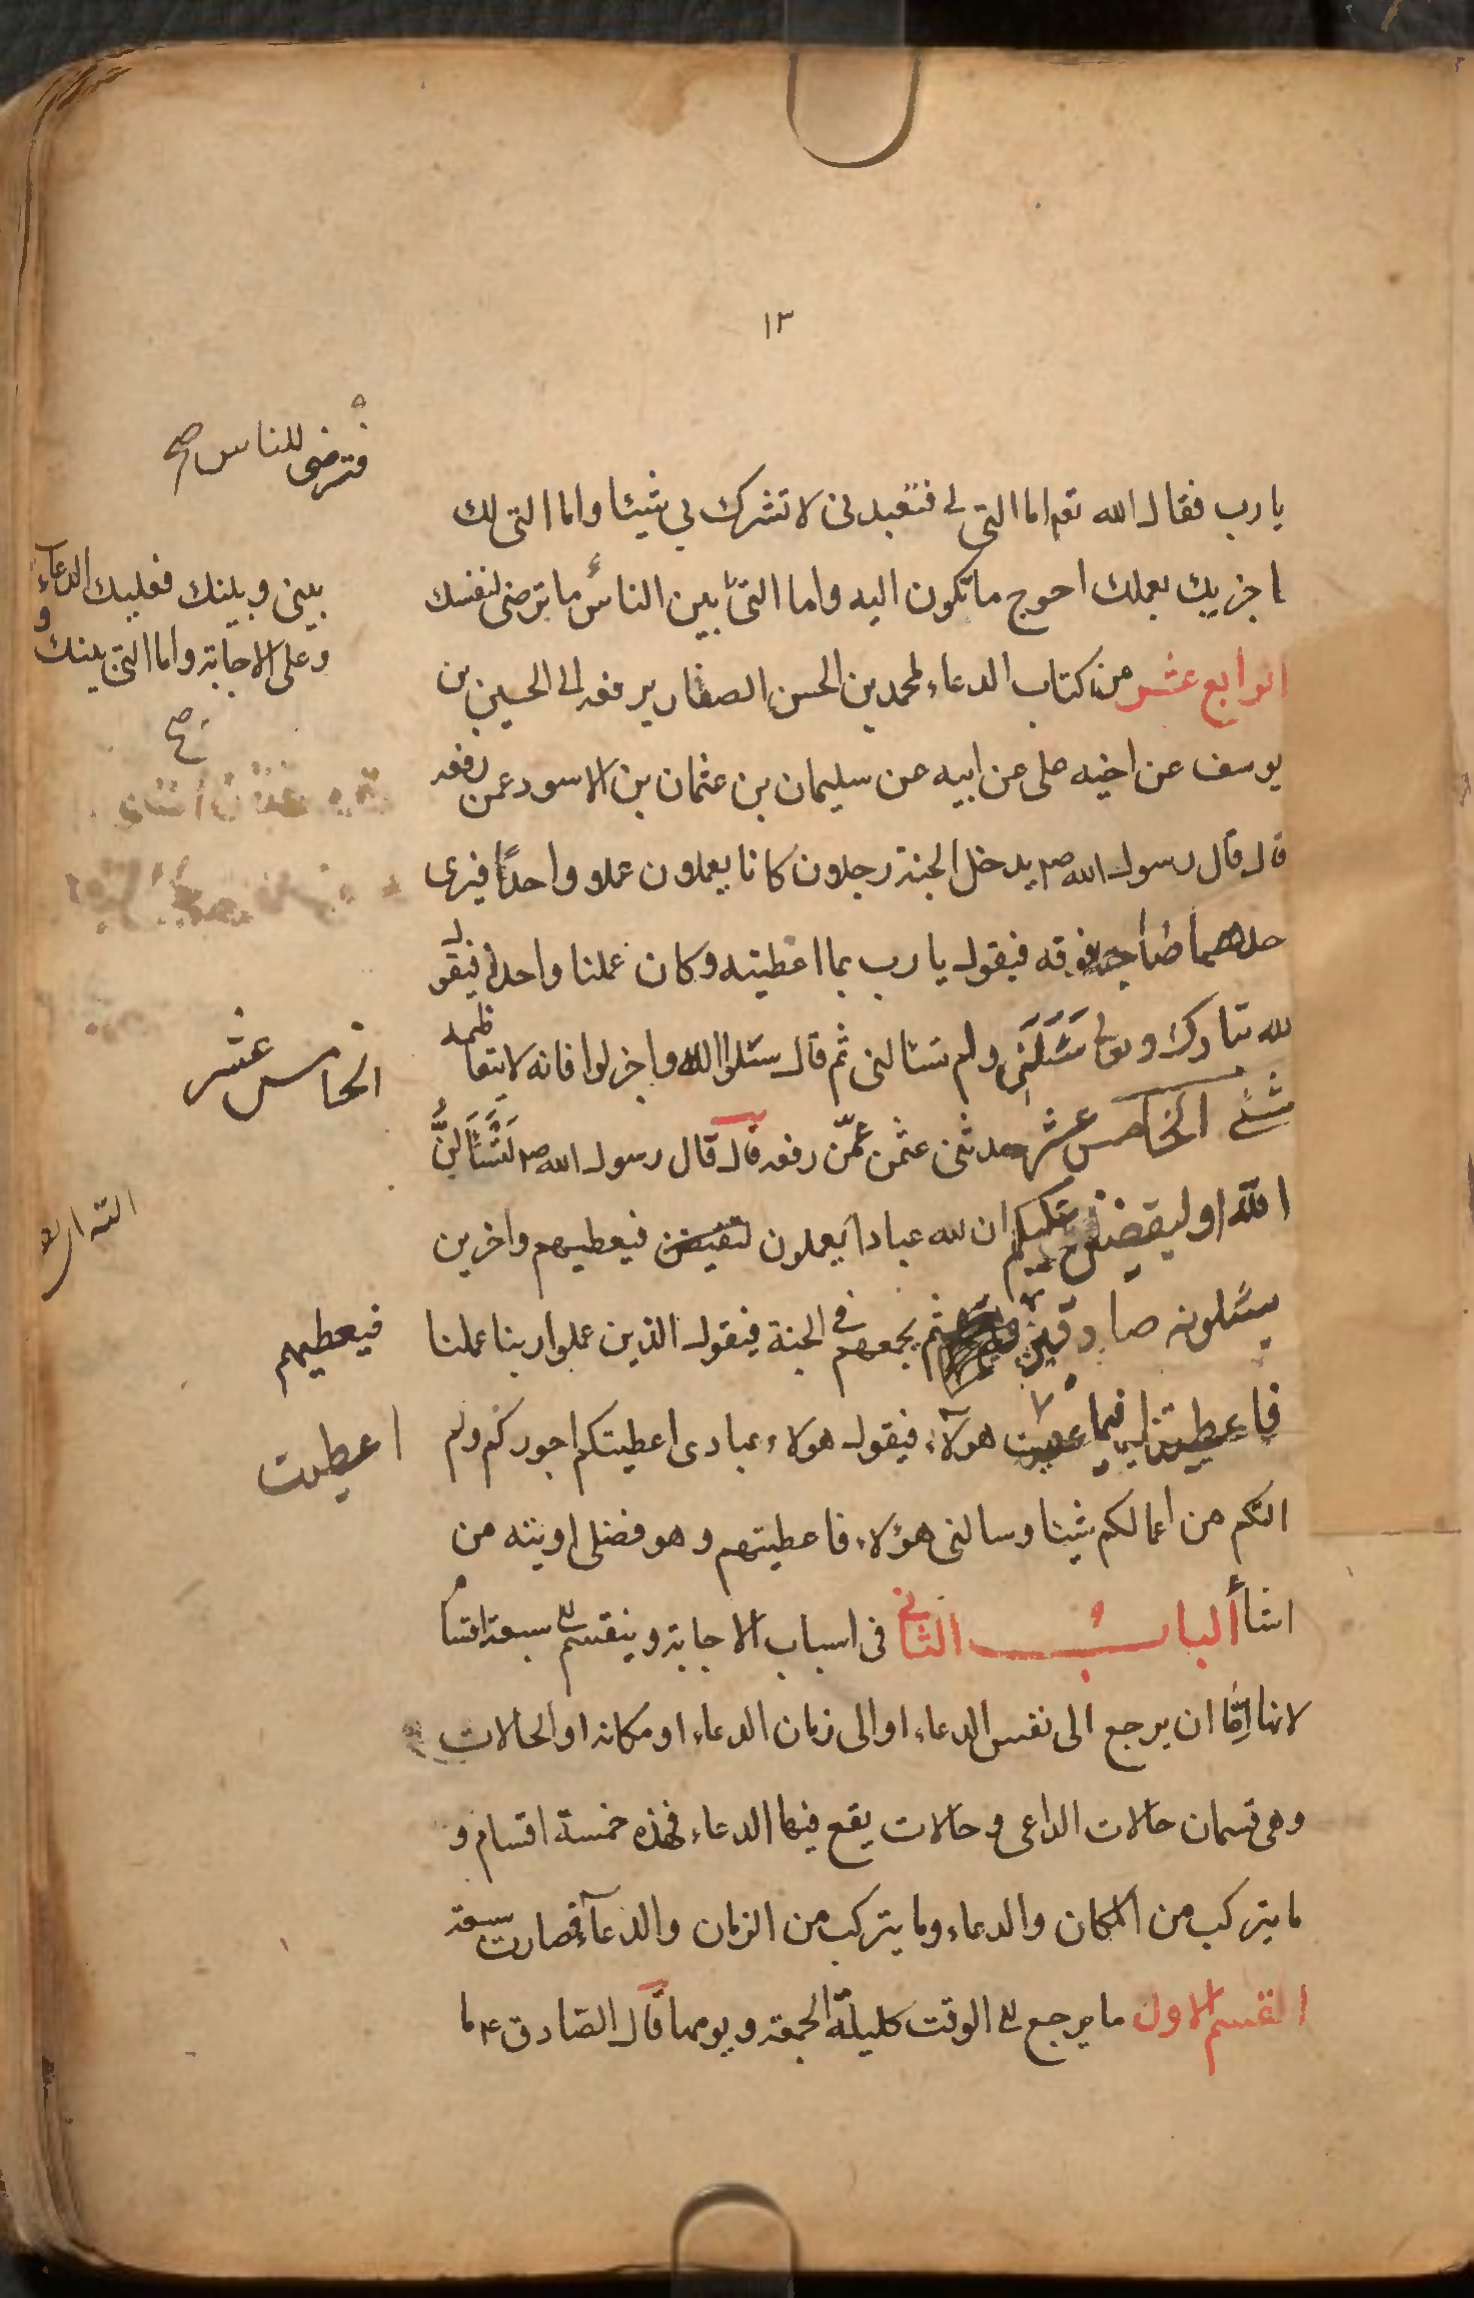 ١٣
يا رب فقال الله نعم اما التى لى فتعبدنى لا تشرك بى شيئا واما التى لك
اجزيك بعملك احوج ما تكون اليه واما التى بين الناس ما ترضى لنفسك
الرابع عشر من كتاب الدعاء لمحمد بن الحسن الصفار يرفعه الى الحسين بن
يوسف عن اخيه على عن ابيه عن سليمان بن عثمان بن الاسود عمن رفعه
قال قال رسول الله ص يدخل الجنة رجلان كانا يعملان عملا واحدًا فيرى
حدهما صاحبه فوقه فيقول يا رب بما اعطيته وكان عملنا واحدا فيقول
لله تبارك وتعالى سَئَلَنى ولم تسالنى ثم قال سئلوا الله واجزلوا فانه لا يتعاظمه
شئ الخامس عشر حدثنى عثمن عمّن رفعه قال قال رسول الله ص لَتَسْأَلُنَّ
الله او ليقضين عليكم ان لله عبادا يعملون فيعطيهم واخرين
يسئلونه صادقين ثم يجمعهم فى الجنة فيقول الذين عملوا ربنا عملنا
فاعطيتنا فبما هولآء فيقول هولاء عبادى اعطيتكم اجوركم ولم
التكم من اعمالكم شيئا وسالنى هؤلاء فاعطيتهم وهو فضلى اوتيته من
اشأ الباب الثانى فى اسباب الاجابة وينقسم الى سبعة اقسام
لانها اِمّا ان يرجع الى نفس الدعاء او الى زمان الدعاء او مكانه او الحالات
وهى قسمان حالات الداعى وحالات يقع فيها الدعاء فهذه خمسة اقسام و
ما يتركب من المكان والدعاء وما يتركب من الزمان والدعآء فصارت سبعة
القسم الاول ما يرجع الى الوقت كليلة الجمعة ويومها قال الصادق ع ما
فترضى للناس صح
بينى وبينك فعليك الدعآء
وعلى الاجابة واما التى بينك و
صح
الخامس عشر
فيعطيهم
اعطيت